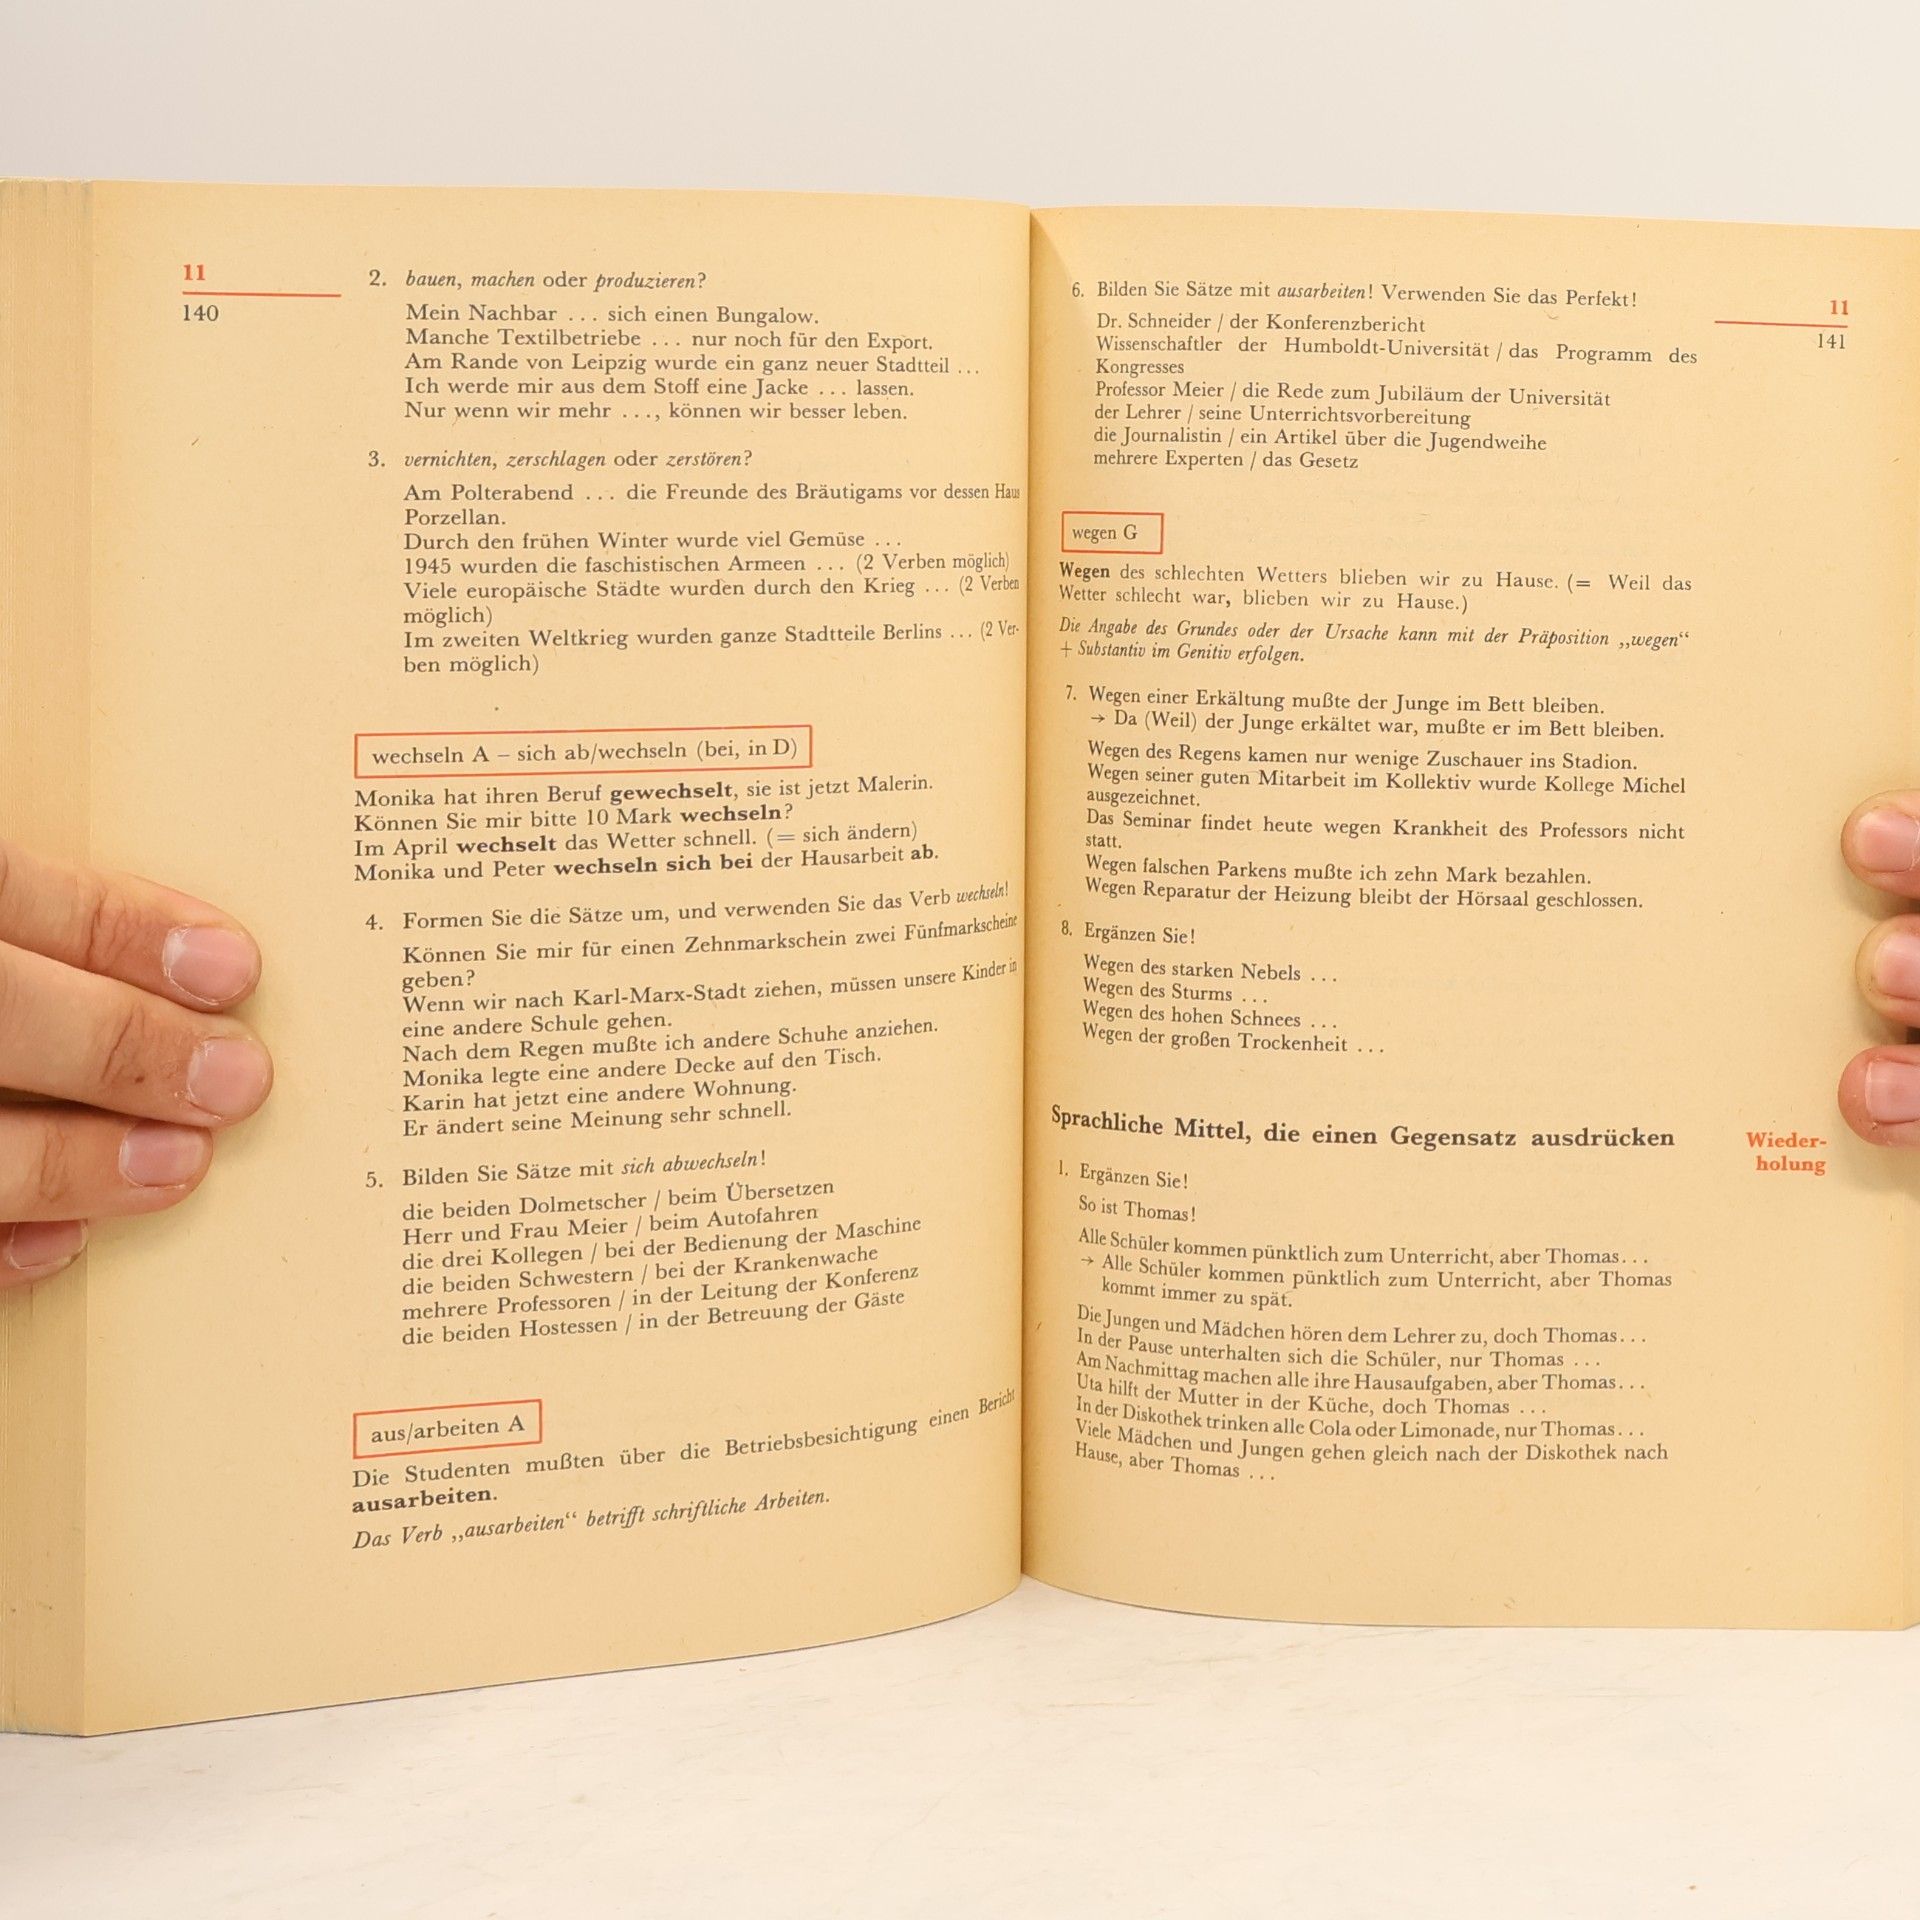 11
140
2. bauen, machen oder produzieren?
Mein Nachbar ... sich einen Bungalow.
Manche Textilbetriebe ... nur noch für den Export.
Am Rande von Leipzig wurde ein ganz neuer Stadtteil ...
Ich werde mir aus dem Stoff eine Jacke ... lassen.
Nur wenn wir mehr ..., können wir besser leben.
3. vernichten, zerschlagen oder zerstören?
Am Polterabend ... die Freunde des Bräutigams vor dessen Haus
Porzellan.
Durch den frühen Winter wurde viel Gemüse ...
1945 wurden die faschistischen Armeen ... (2 Verben möglich)
Viele europäische Städte wurden durch den Krieg ... (2 Verben
möglich)
Im zweiten Weltkrieg wurden ganze Stadtteile Berlins ... (2 Ver-
ben möglich)
wechseln A – sich ab/wechseln (bei, in D)
Monika hat ihren Beruf gewechselt, sie ist jetzt Malerin.
Können Sie mir bitte 10 Mark wechseln?
Im April wechselt das Wetter schnell. (= sich ändern)
Monika und Peter wechseln sich bei der Hausarbeit ab.
4. Formen Sie die Sätze um, und verwenden Sie das Verb wechseln!
Können Sie mir für einen Zehnmarkschein zwei Fünfmarkscheine
geben?
Wenn wir nach Karl-Marx-Stadt ziehen, müssen unsere Kinder in
eine andere Schule gehen.
Nach dem Regen mußte ich andere Schuhe anziehen.
Monika legte eine andere Decke auf den Tisch.
Karin hat jetzt eine andere Wohnung.
Er ändert seine Meinung sehr schnell.
5. Bilden Sie Sätze mit sich abwechseln!
die beiden Dolmetscher / beim Übersetzen
Herr und Frau Meier / beim Autofahren
die drei Kollegen / bei der Bedienung der Maschine
die beiden Schwestern / bei der Krankenwache
mehrere Professoren / in der Leitung der Konferenz
die beiden Hostessen / in der Betreuung der Gäste
aus/arbeiten A
Die Studenten mußten über die Betriebsbesichtigung einen Bericht
ausarbeiten.
Das Verb „ausarbeiten“ betrifft schriftliche Arbeiten.
11
141
6. Bilden Sie Sätze mit ausarbeiten! Verwenden Sie das Perfekt!
Dr. Schneider / der Konferenzbericht
Wissenschaftler der Humboldt-Universität / das Programm des
Kongresses
Professor Meier / die Rede zum Jubiläum der Universität
der Lehrer / seine Unterrichtsvorbereitung
die Journalistin / ein Artikel über die Jugendweihe
mehrere Experten / das Gesetz
wegen G
Wegen des schlechten Wetters blieben wir zu Hause. (= Weil das
Wetter schlecht war, blieben wir zu Hause.)
Die Angabe des Grundes oder der Ursache kann mit der Präposition „wegen“
+ Substantiv im Genitiv erfolgen.
7. Wegen einer Erkältung mußte der Junge im Bett bleiben.
→ Da (Weil) der Junge erkältet war, mußte er im Bett bleiben.
Wegen des Regens kamen nur wenige Zuschauer ins Stadion.
Wegen seiner guten Mitarbeit im Kollektiv wurde Kollege Michel
ausgezeichnet.
Das Seminar findet heute wegen Krankheit des Professors nicht
statt.
Wegen falschen Parkens mußte ich zehn Mark bezahlen.
Wegen Reparatur der Heizung bleibt der Hörsaal geschlossen.
8. Ergänzen Sie!
Wegen des starken Nebels ...
Wegen des Sturms ...
Wegen des hohen Schnees ...
Wegen der großen Trockenheit ...
Sprachliche Mittel, die einen Gegensatz ausdrücken
Wieder-
holung
1. Ergänzen Sie!
So ist Thomas!
Alle Schüler kommen pünktlich zum Unterricht, aber Thomas...
→ Alle Schüler kommen pünktlich zum Unterricht, aber Thomas
kommt immer zu spät.
Die Jungen und Mädchen hören dem Lehrer zu, doch Thomas...
In der Pause unterhalten sich die Schüler, nur Thomas ...
Am Nachmittag machen alle ihre Hausaufgaben, aber Thomas...
Uta hilft der Mutter in der Küche, doch Thomas ...
In der Diskothek trinken alle Cola oder Limonade, nur Thomas...
Viele Mädchen und Jungen gehen gleich nach der Diskothek nach
Hause, aber Thomas ...